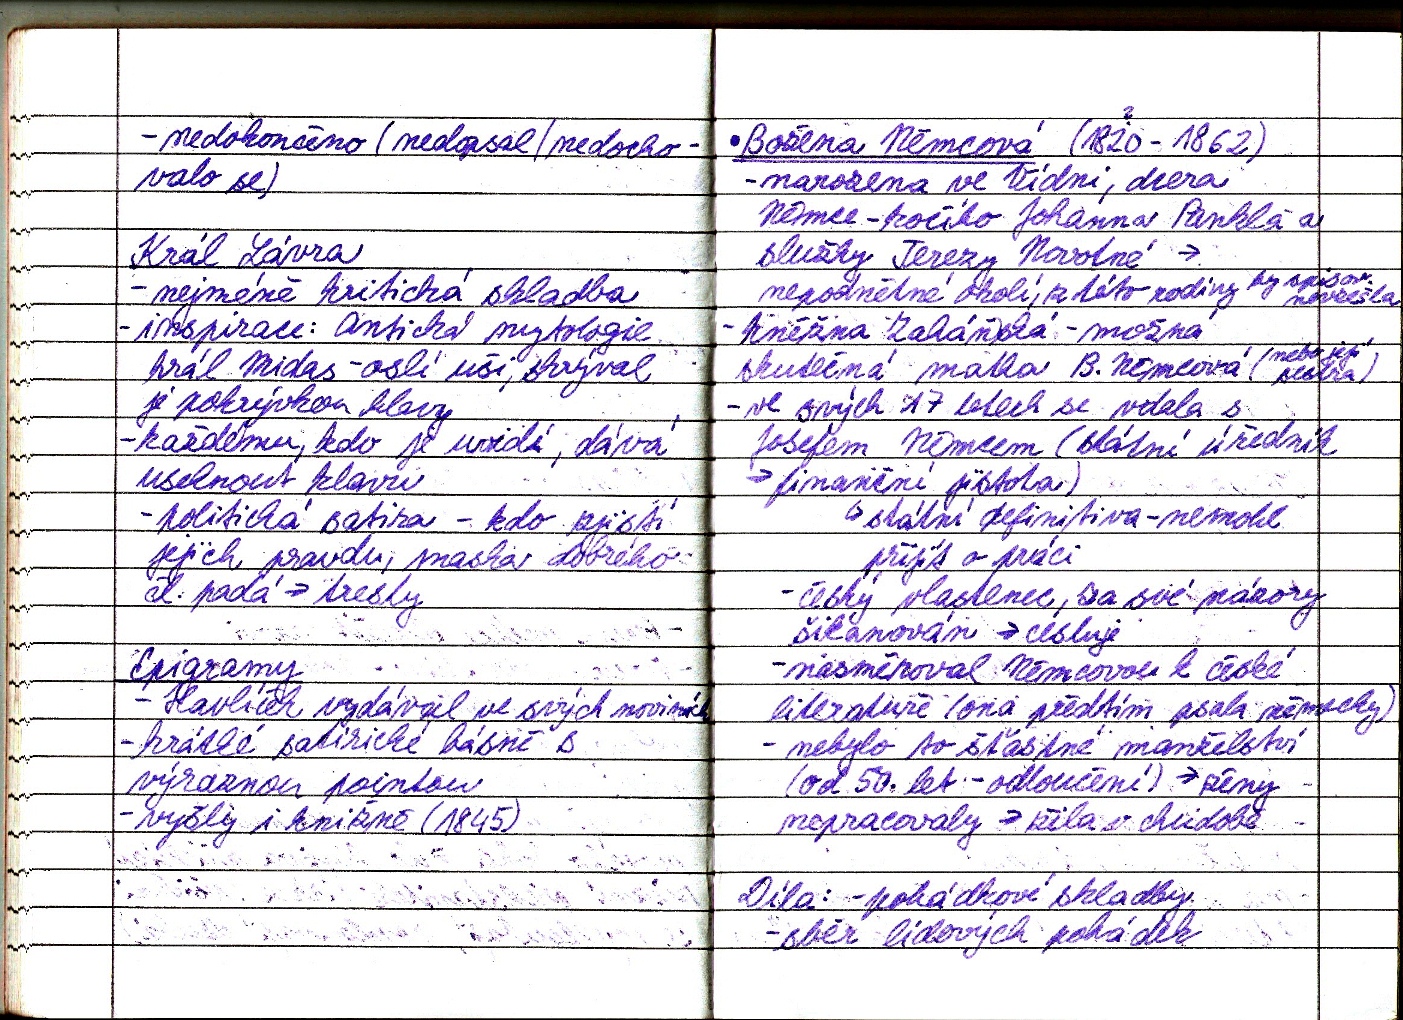 - nedokončeno (nedopsal/nedocho-
valo se)
Král Lávra
- nejméně kritická skladba
- inspirace: Antická mytologie
král Midas - oslí uši, skrýval
je pokrývkou hlavy
- každému, kdo je uvidí, dává
useknout hlavu
- politická satira - kdo zjistí
jejich pravdu, maska dobrého
čl. padá → tresty
Epigramy
- Havlíček vydával ve svých novinách
- krátké satirické básně s
výraznou pointou
- vyšly i knižně (1845)
• Božena Němcová (1820 - 1862)
?
- narozena ve Vídni, dcera
Němce - kočího Johanna Pankla a
služky Terezy Novotné →
nepodnětné okolí, z této rodiny by spisov.
nevzešla
- kněžna Zaháňská - možná
skutečná matka B. Němcová (nebo její
sestra)
- ve svých 17 letech se vdala s
Josefem Němcem (státní úředník
→ finanční jistota)
↳ státní definitiva - nemohl
přijít o práci
- český vlastenec, za své názory
šikanován → cestuje
- nasměroval Němcovou k české
literatuře (ona předtím psala německy)
- nebylo to šťastné manželství
(od 50. let - odloučení) → ženy
nepracovaly → žila v chudobě
Díla: - pohádkové skladby
- sběr lidových pohádek